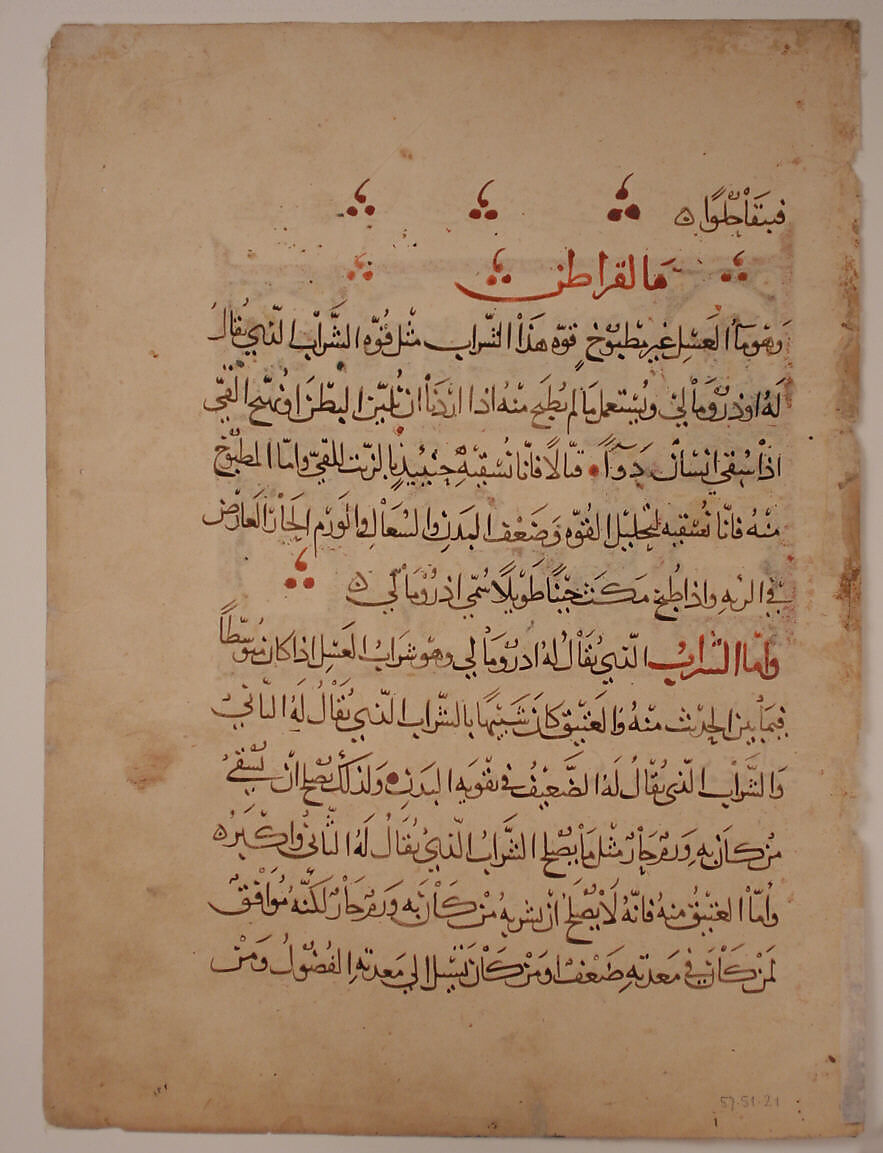 فيبقا حلوًا ۞
مالقراطن
وهو مآء العسل غير مطبوخ قوه هذا الشراب مثل قوه الشراب الذي يقال
له اوذرومالي ويستعمل ما لم يطبخ منه اذا اردنا ان نلين البطن او نهيج القيء
اذا سقي انسان دوآءً قتالا فانا نسقيه حينيذ بالزيت للقيء واما المطبوخ
منه فانا نسقيه لتحليل القوه وضعف البدن والسعال والورم الحار العارض
في الريه واذا طبخ مكث حينًا طويلا سمي اذرومالي ۞
واما الشراب الذي يقال له ادرومالي وهو شراب العسل اذا كان متوسطًا
فيما بين الحديث منه والعتيق كان شبيهًا بالشراب الذي يقال له الثاني
والشراب الذي يقال له الضعيف في تقويه البدن ولذلك يصلح ان يسقى
من كان به ورم حار مثل ما يصلح الشراب الذي يقال له الثاني
واما العتيق منه فانه لا يصلح ان يشربه من كان به ورم حار لكنه موافق
لمن كان في معدته ضعف او من كان تسيل الى معدته الفضول ومن
57.51.21